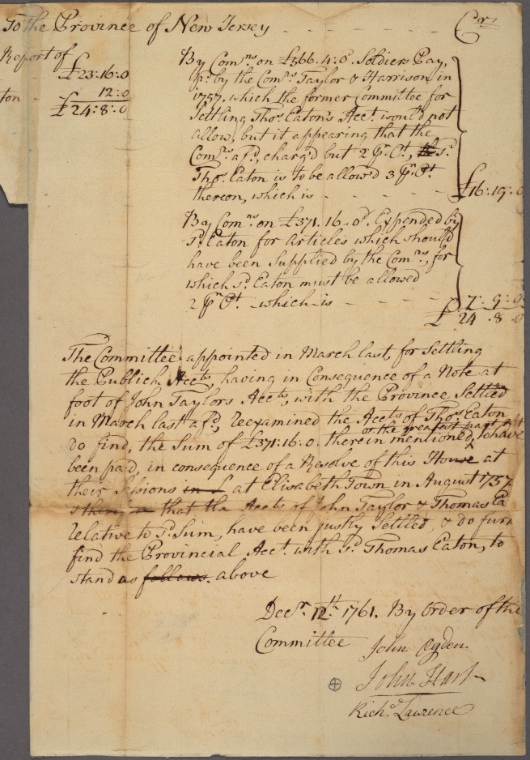 To the Province of New Jersey Crs
Report of
£23:16:0
12:0
ton £24:8:0
By Comns on £566.4:0. Soldiers Pay,
pd. by the Coms. Taylor & Harrison, in
1757. which the former Committee for
Settling Thos. Eaton's Acct. would not
allow, but it appearing that the
Coms. afsd. charg'd but 2 Pr. Ct, sd.
Tho. Eaton is to be allow'd 3 Pr. Ct
thereon, which is £16:19:0
By Comns on £371.16.0. Expended by
sd. Eaton for Articles which should
have been Supplied by the Coms. for
which sd. Eaton must be allowed
2 Pr. Ct. which is 7:9:0
£24:8:0
The Committee appointed in March last, for Settling
the Publick Accts, having in Consequence of a Note at
foot of John Taylors Accts, with the Province Settled
in March last afsd, reexamined the Accts of Thos. Eaton
or the greatest part
do find, the Sum of £371:16:0. therein mentioned, to have
been paid, in consequence of a Resolve of this House at
their Sessions in at Elisabeth Town in August 1757
that the Accts of John Taylor & Thomas Ea
relative to sd. Sum, have been justly Settled, & do furr
find the Provincial Acct. with sd. Thomas Eaton, to
stand as follows above
Decr. 12th. 1761. By Order of the
Committee John Ogden.
John Hart
Richd. Lawrence